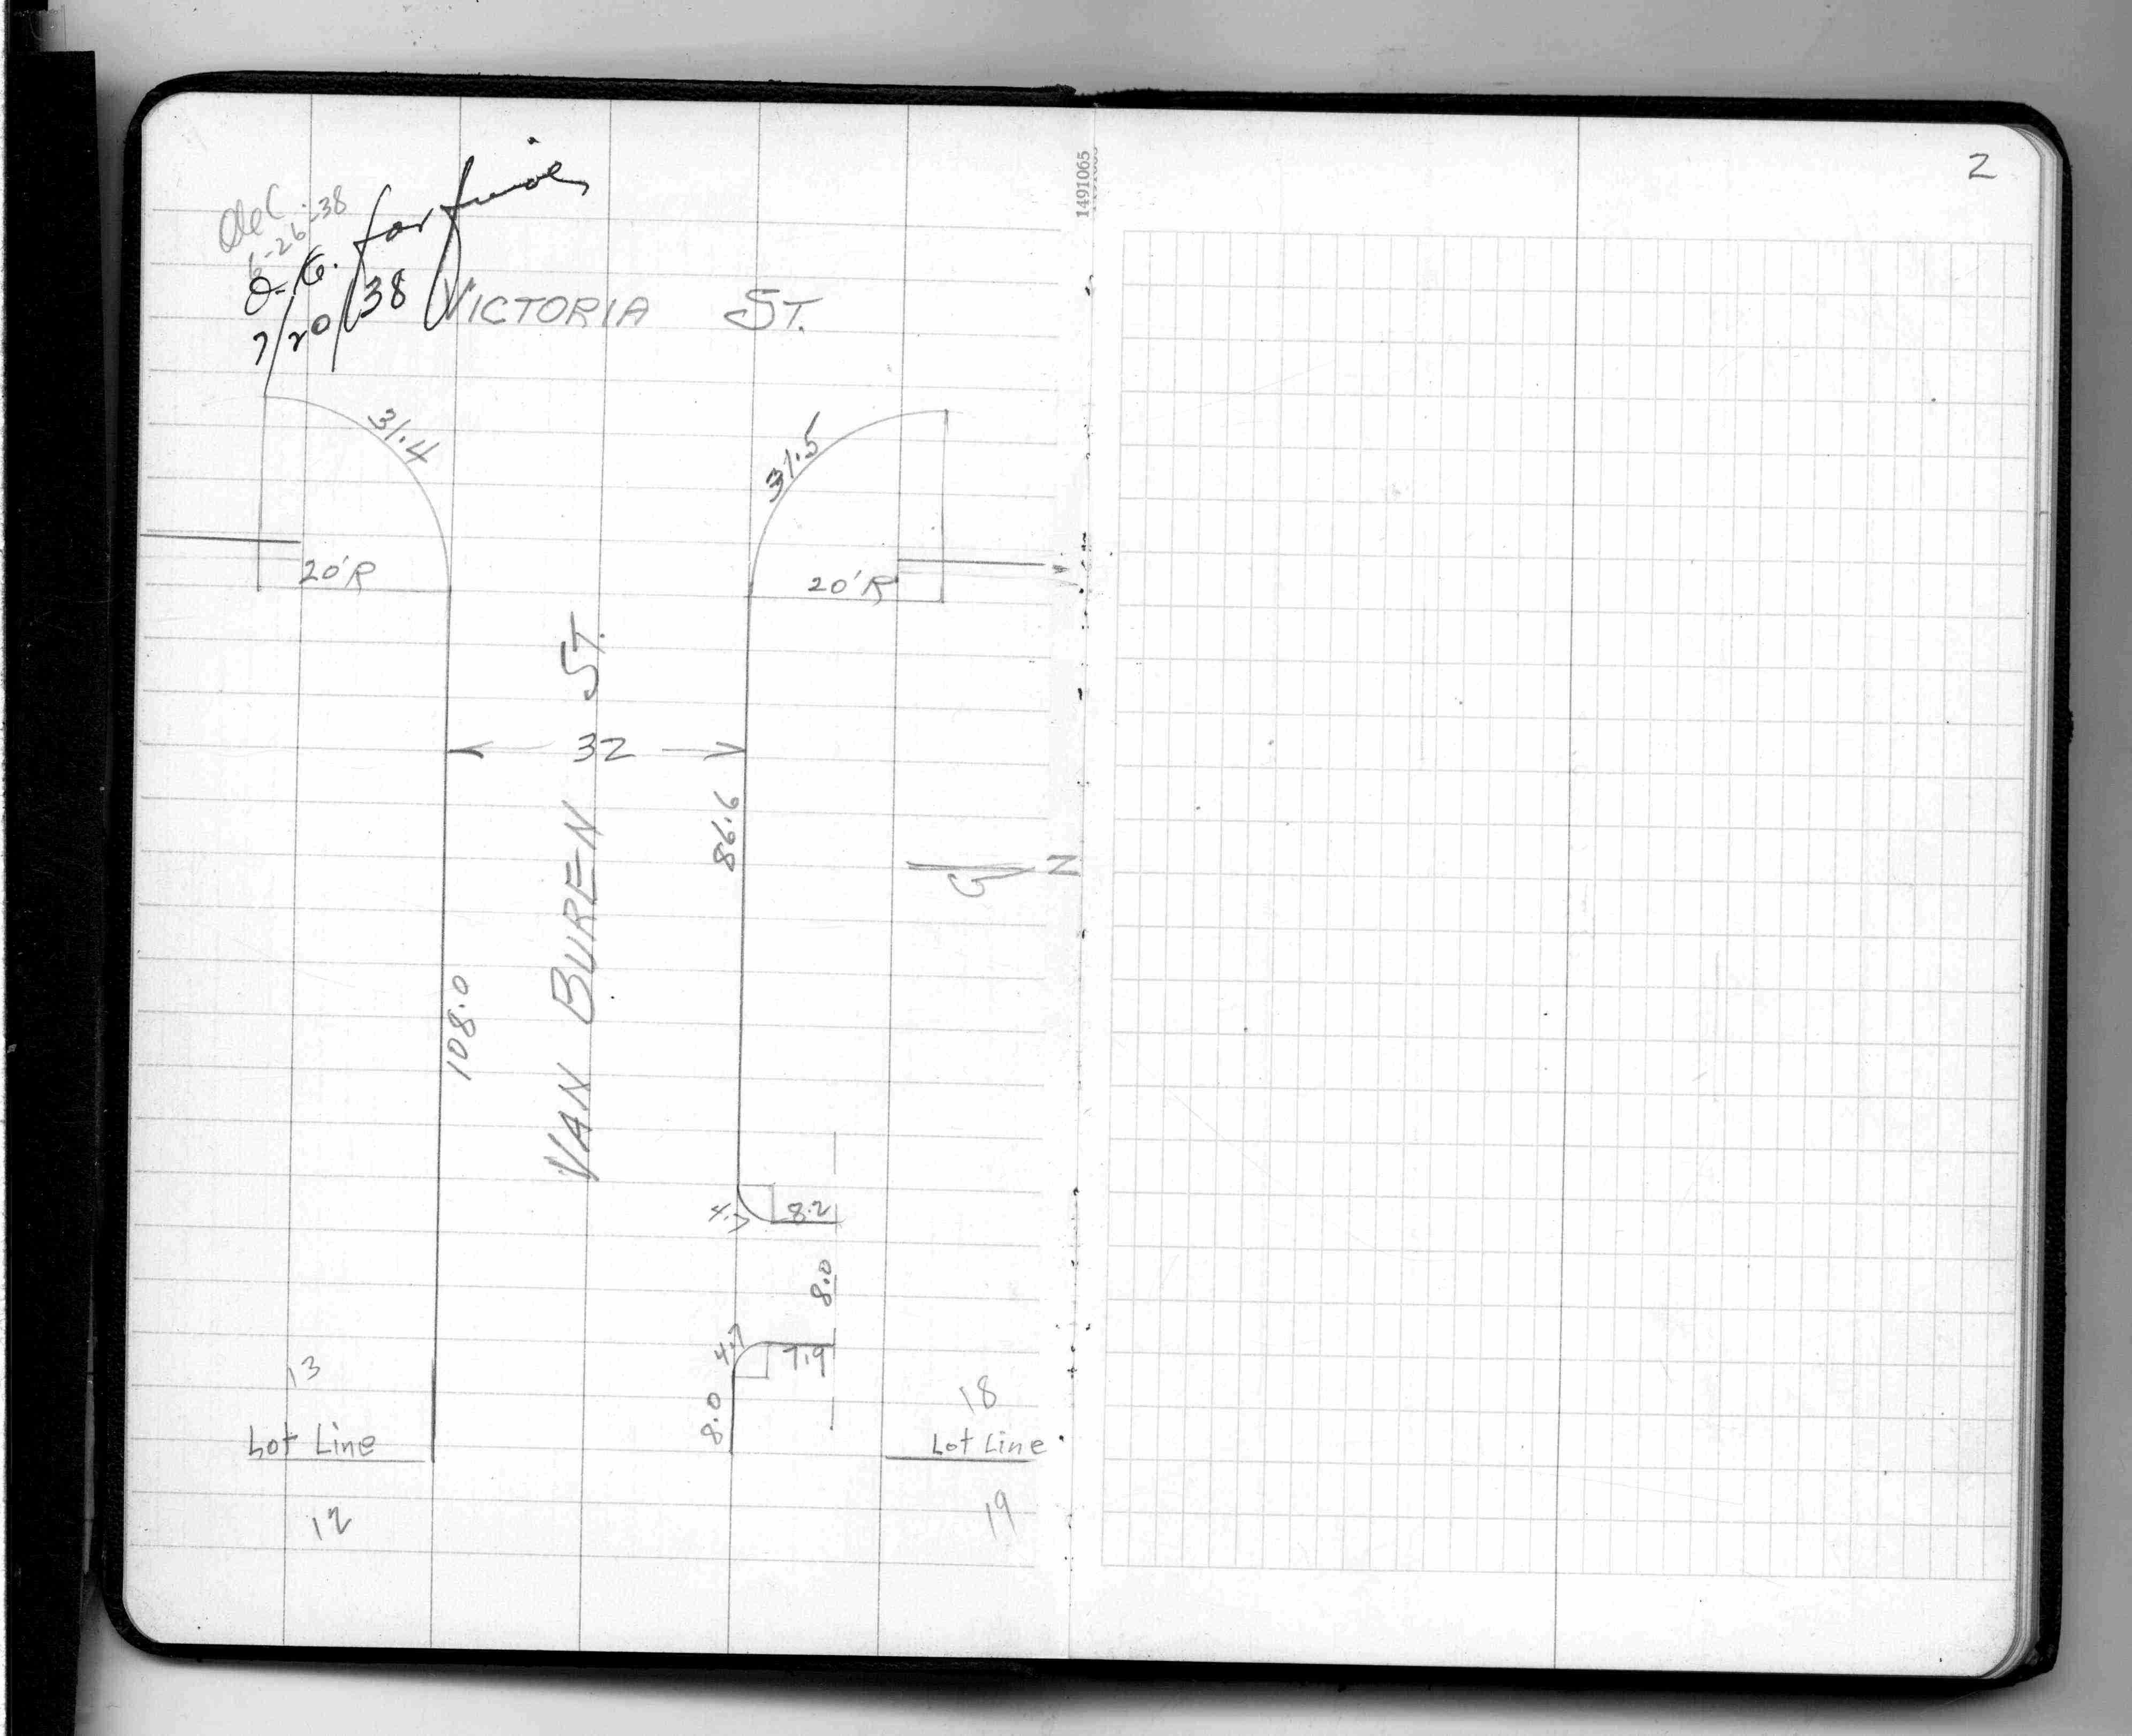 2
1491065
6-26-38
O.K. for
7/20/38
VICTORIA ST.
31.4
31.5
20'R
20'R
VAN BUREN ST.
32
86.6
N
108.0
4.7
8.2
8.0
4.7
7.9
8.0
13
18
Lot Line
Lot Line
12
19